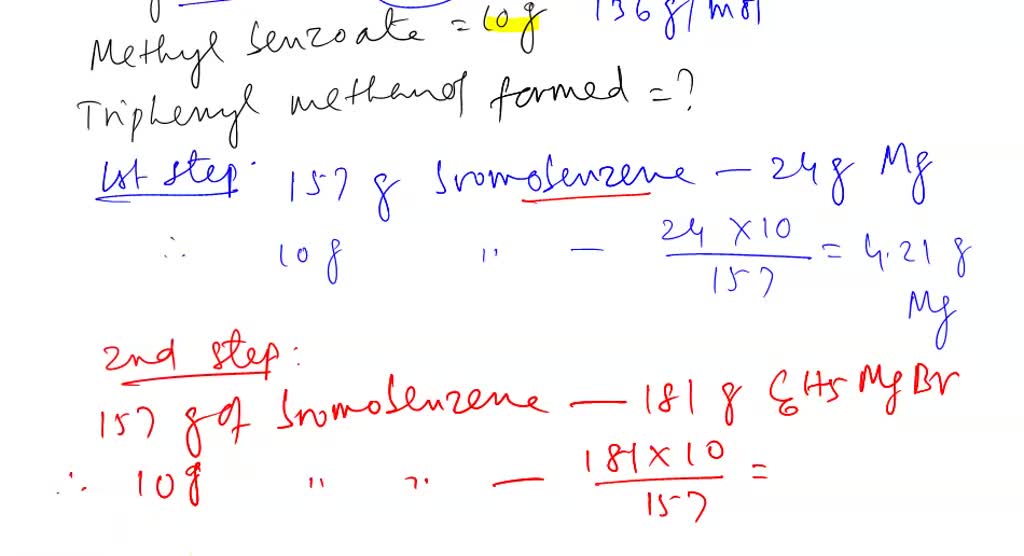 Methyl benzoate = 10g 136 g/mol
Triphenyl methanol formed = ?
1st step: 157 g bromobenzene — 24 g Mg
∴ 10 g " — 24 × 10 / 157 = 4.21 g Mg
2nd step:
157 g of bromobenzene — 181 g C6H5MgBr
∴ 10g " " — 181 × 10 / 157 =